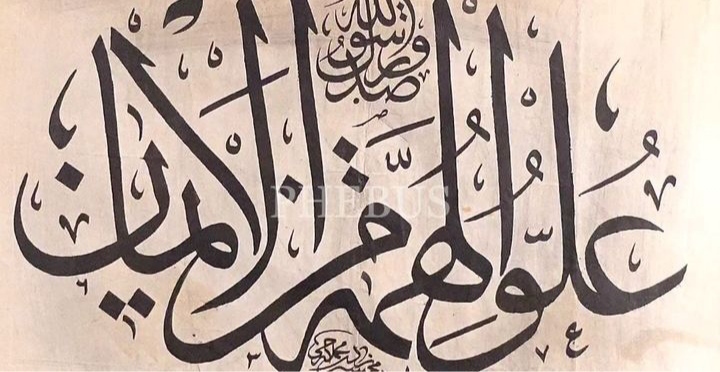 عُلُوُّ الْهِمَّةِ مِنَ الْاِيمَانِ
صدق رسول الله
PHEBUS